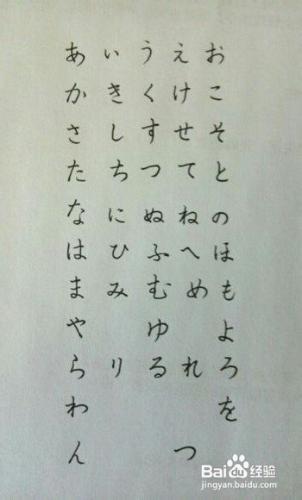 あ い う え お
か き く け こ
さ し す せ そ
た ち つ て と
な に ぬ ね の
は ひ ふ へ ほ
ま み む め も
や ゆ よ
ら り る れ ろ
わ を
ん つ
Bai经验
jingyan.baidu.com